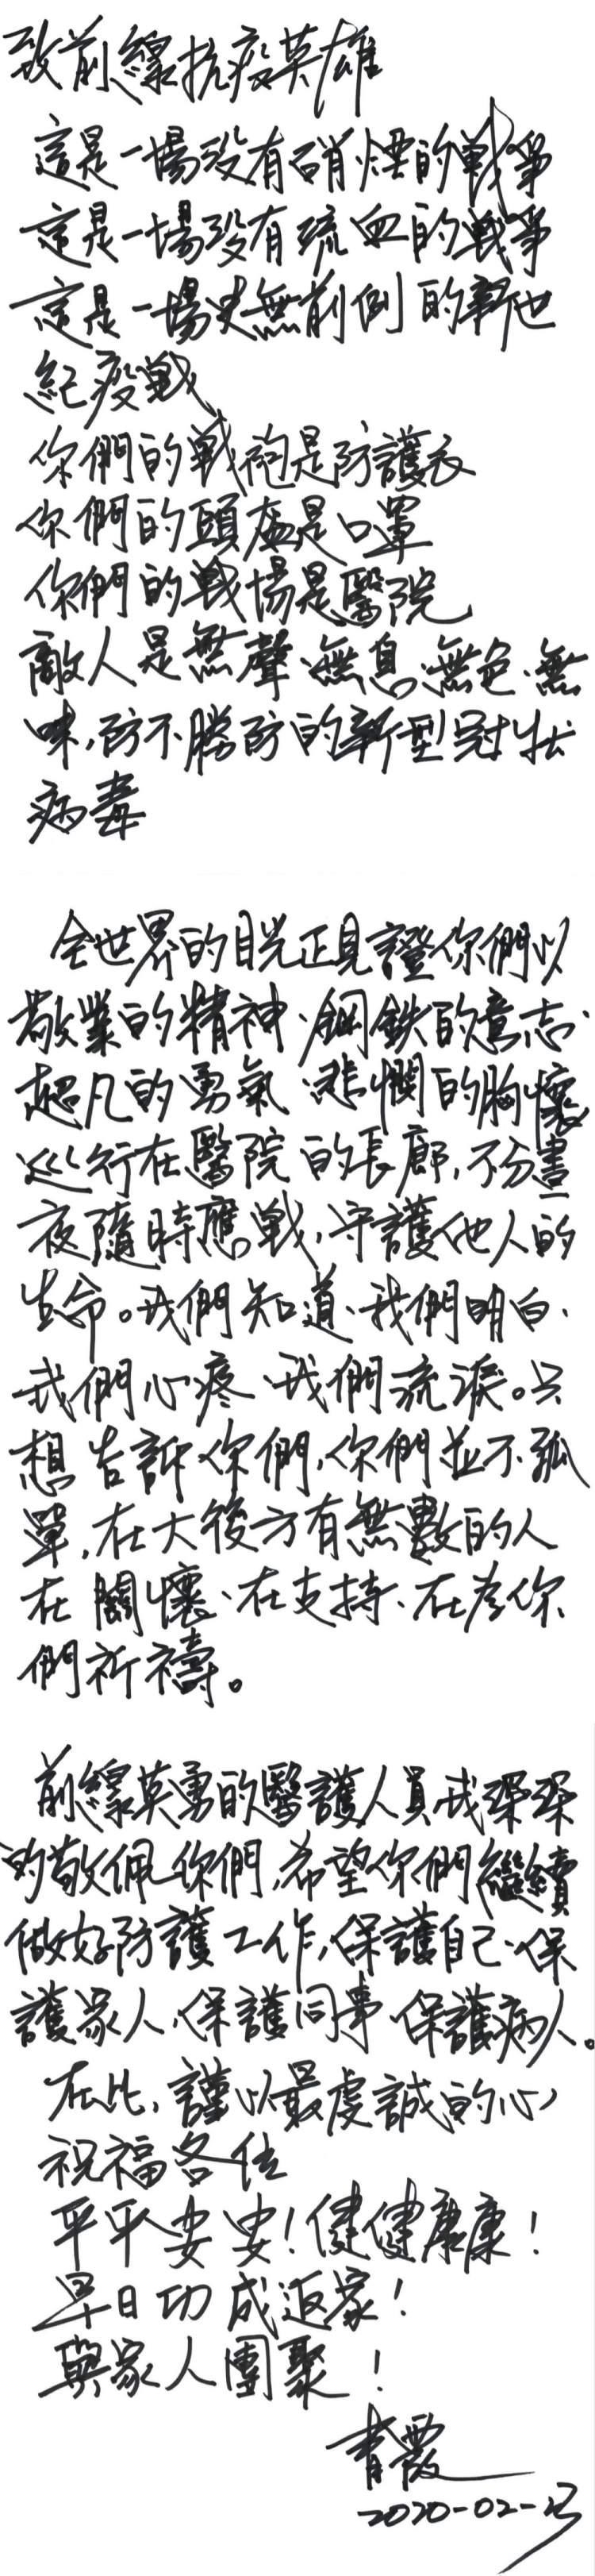 致前線抗疫英雄
這是一場没有硝煙的戰爭
這是一場没有流血的戰爭
這是一場史無前例的新世
紀疫戰
你們的戰袍是防護衣
你們的頭盔是口罩
你們的戰場是醫院
敵人是無聲、無息、無色、無
味，防不勝防的新型冠狀
病毒
全世界的目光正見證你們以
敬業的精神、鋼鉄的意志、
超凡的勇氣、悲憫的胸懷
巡行在醫院的長廊，不分晝
夜隨時應戰，守護他人的
生命。我們知道、我們明白、
我們心疼、我們流淚。只
想告訴你們，你們並不孤
單，在大後方有無數的人
在關懷、在支持、在為你
們祈禱。
前線英勇的醫護人員，我深深
的敬佩你們，希望你們繼續
做好防護工作，保護自己、保
護家人、保護同事、保護病人。
在此，謹以最虔誠的心
祝福各位
平平安安！健健康康！
早日功成返家！
與家人團聚！
青霞
2020-02-